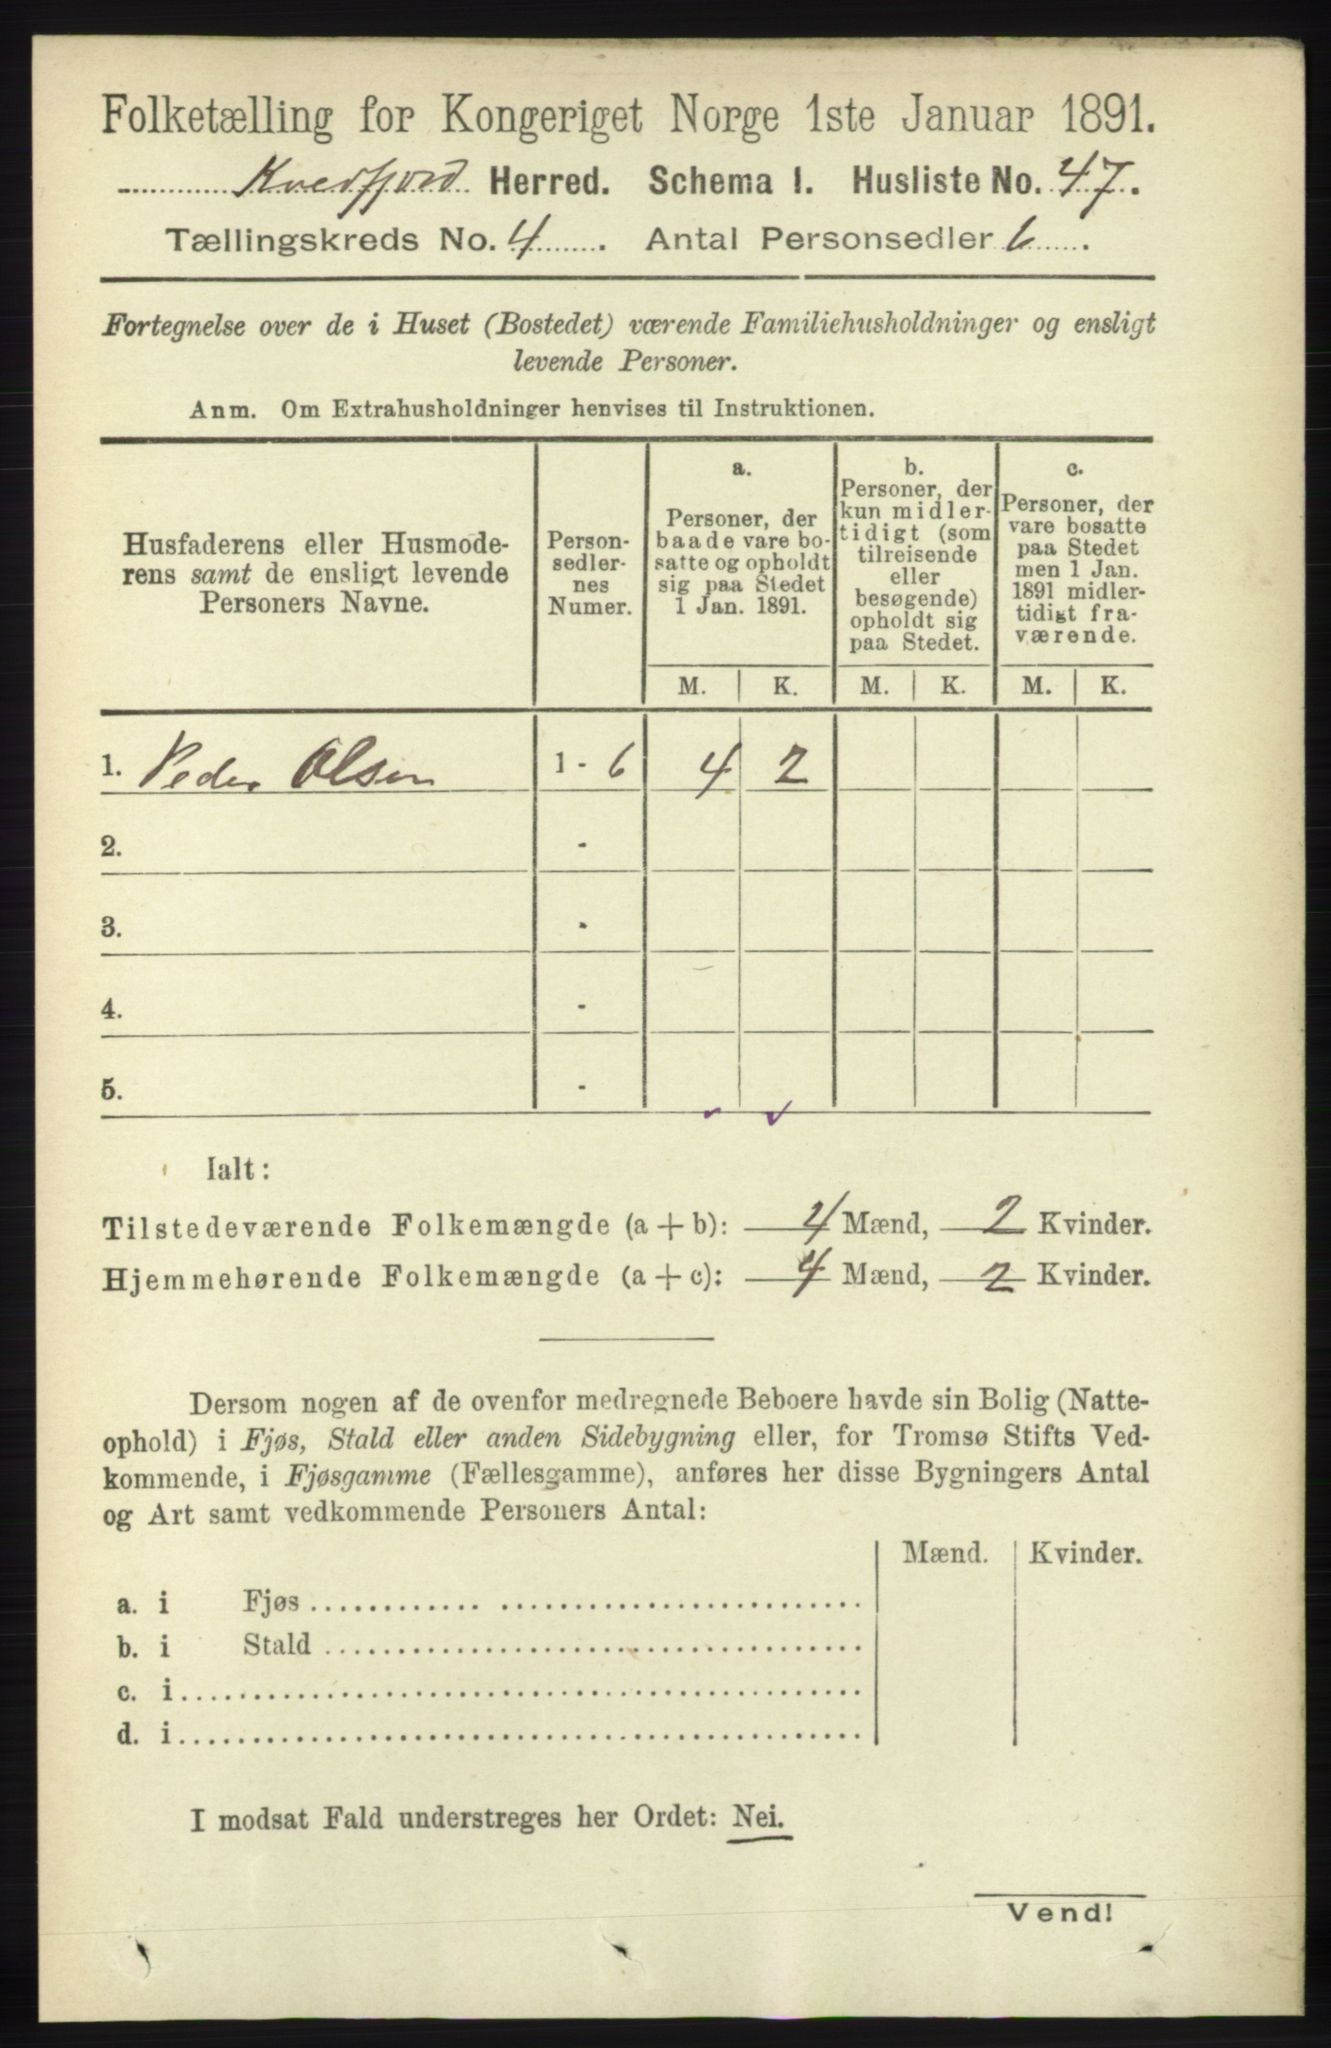 Folketælling for Kongeriget Norge 1ste Januar 1891.
Kvedfjord Herred. Schema I. Husliste No. 47.
Tællingskreds No. 4. Antal Personsedler 6.
Fortegnelse over de i Huset (Bostedet) værende Familiehusholdninger og ensligt
levende Personer.
Anm. Om Extrahusholdninger henvises til Instruktionen.
Husfaderens eller Husmode-
rens samt de ensligt levende
Personers Navne.
Person-
sedler-
nes
Numer.
a.
Personer, der
baade vare bo-
satte og opholdt
sig paa Stedet
1 Jan. 1891.
b.
Personer, der
kun midler-
tidigt (som
tilreisende
eller
besøgende)
opholdt sig
paa Stedet.
c.
Personer, der
vare bosatte
paa Stedet
men 1 Jan.
1891 midler-
tidigt fra-
værende.
M. K. M. K. M. K.
1. Peder Olsen 1 - 6 4 2
2. -
3. -
4. -
5. -
Ialt:
Tilstedeværende Folkemængde (a + b): 4 Mænd, 2 Kvinder.
Hjemmehørende Folkemængde (a + c): 4 Mænd, 2 Kvinder.
Dersom nogen af de ovenfor medregnede Beboere havde sin Bolig (Natte-
ophold) i Fjøs, Stald eller anden Sidebygning eller, for Tromsø Stifts Ved-
kommende, i Fjøsgamme (Fællesgamme), anføres her disse Bygningers Antal
og Art samt vedkommende Personers Antal:
Mænd. Kvinder.
a. i Fjøs
b. i Stald
c. i
d. i
I modsat Fald understreges her Ordet: Nei.
Vend!